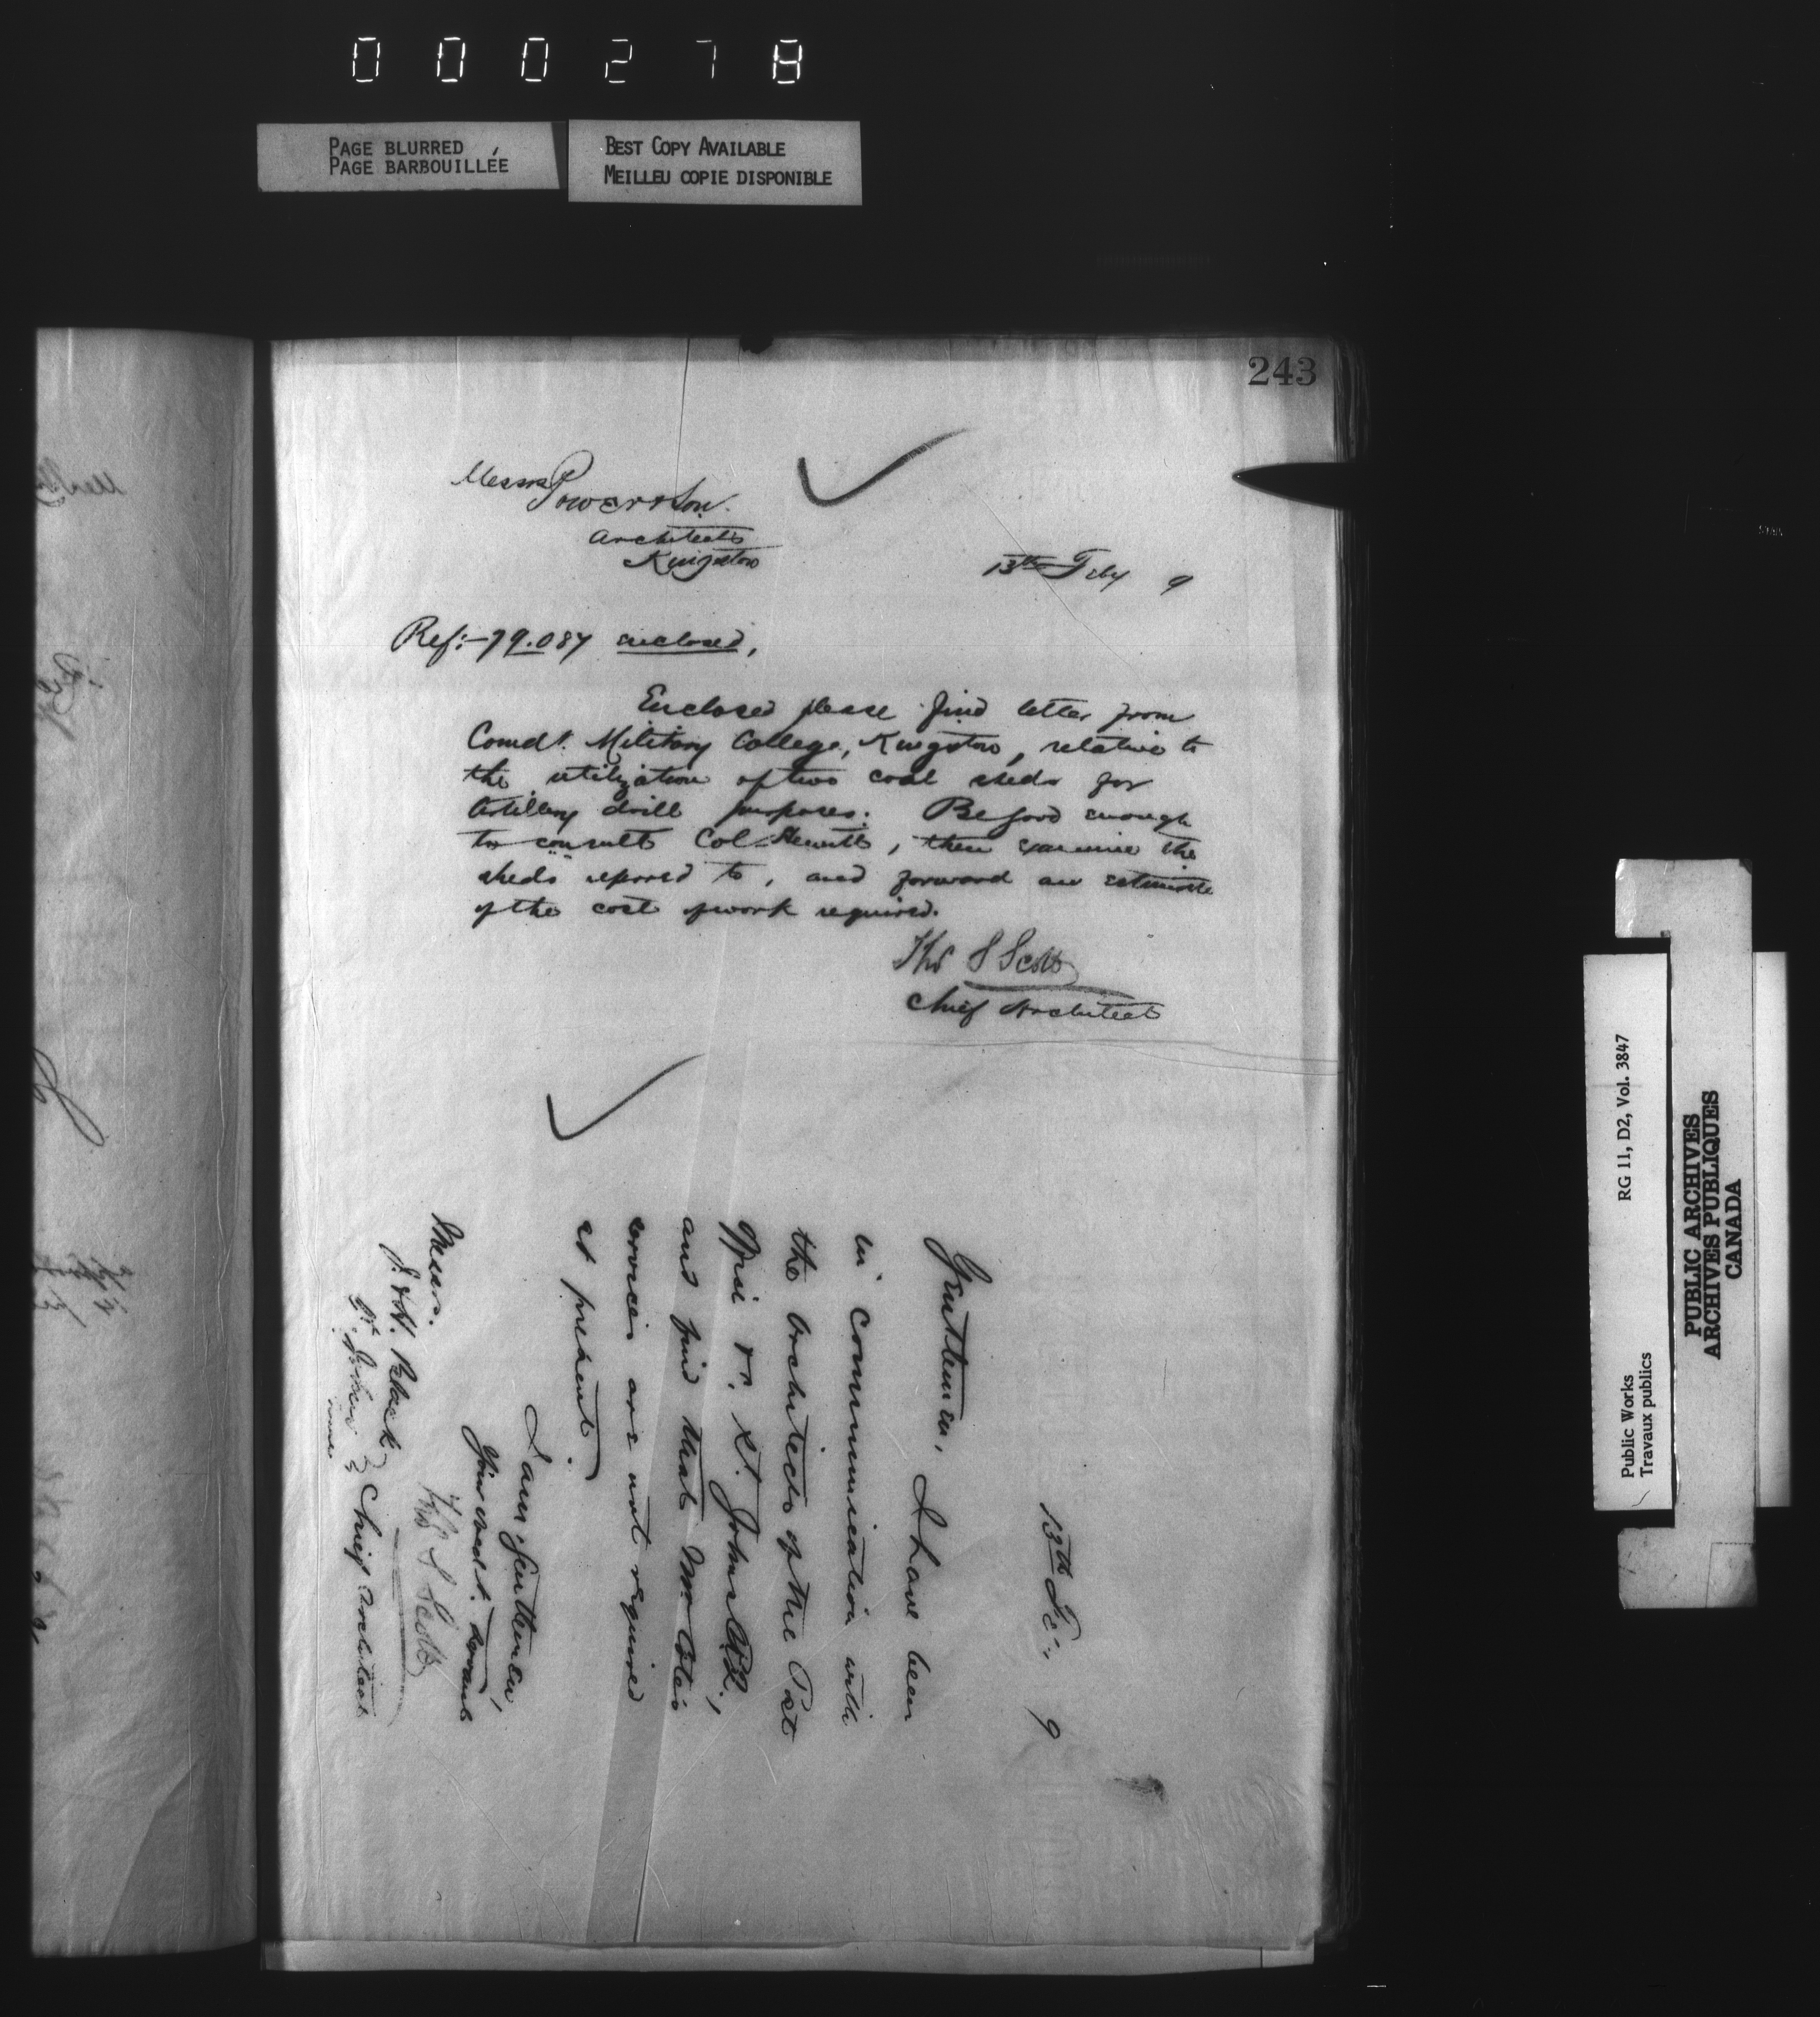 000278
PAGE BLURRED
PAGE BARBOUILLÉE
BEST COPY AVAILABLE
MEILLEU COPIE DISPONIBLE
243
Messrs Power & Son.
Architects
Kingston
13th Feby 9
Ref:- 79.087 enclosed,
Enclosed please find letter from
Comdt. Military College, Kingston, relative to
the utilization of two coal sheds for
Artillery drill purposes. Be good enough
to consult Col. Hewitt, then examine the
sheds referred to, and forward an estimate
of the cost of work required.
Thos S Scott
Chief Architect
13th Fe: 9
Gentlemen, I have been
in communication with
the Architects of the Post
Office &c. St. Johns P.Q.,
and find that Mr
services are not required
at present.
I am Gentlemen,
Your obedt. Servant
Thos S Scott
Chief Architect
Messrs.
J. & H. Black
St. Johns
Public Works
Travaux publics
RG 11, D2, Vol. 3847
PUBLIC ARCHIVES
ARCHIVES PUBLIQUES
CANADA